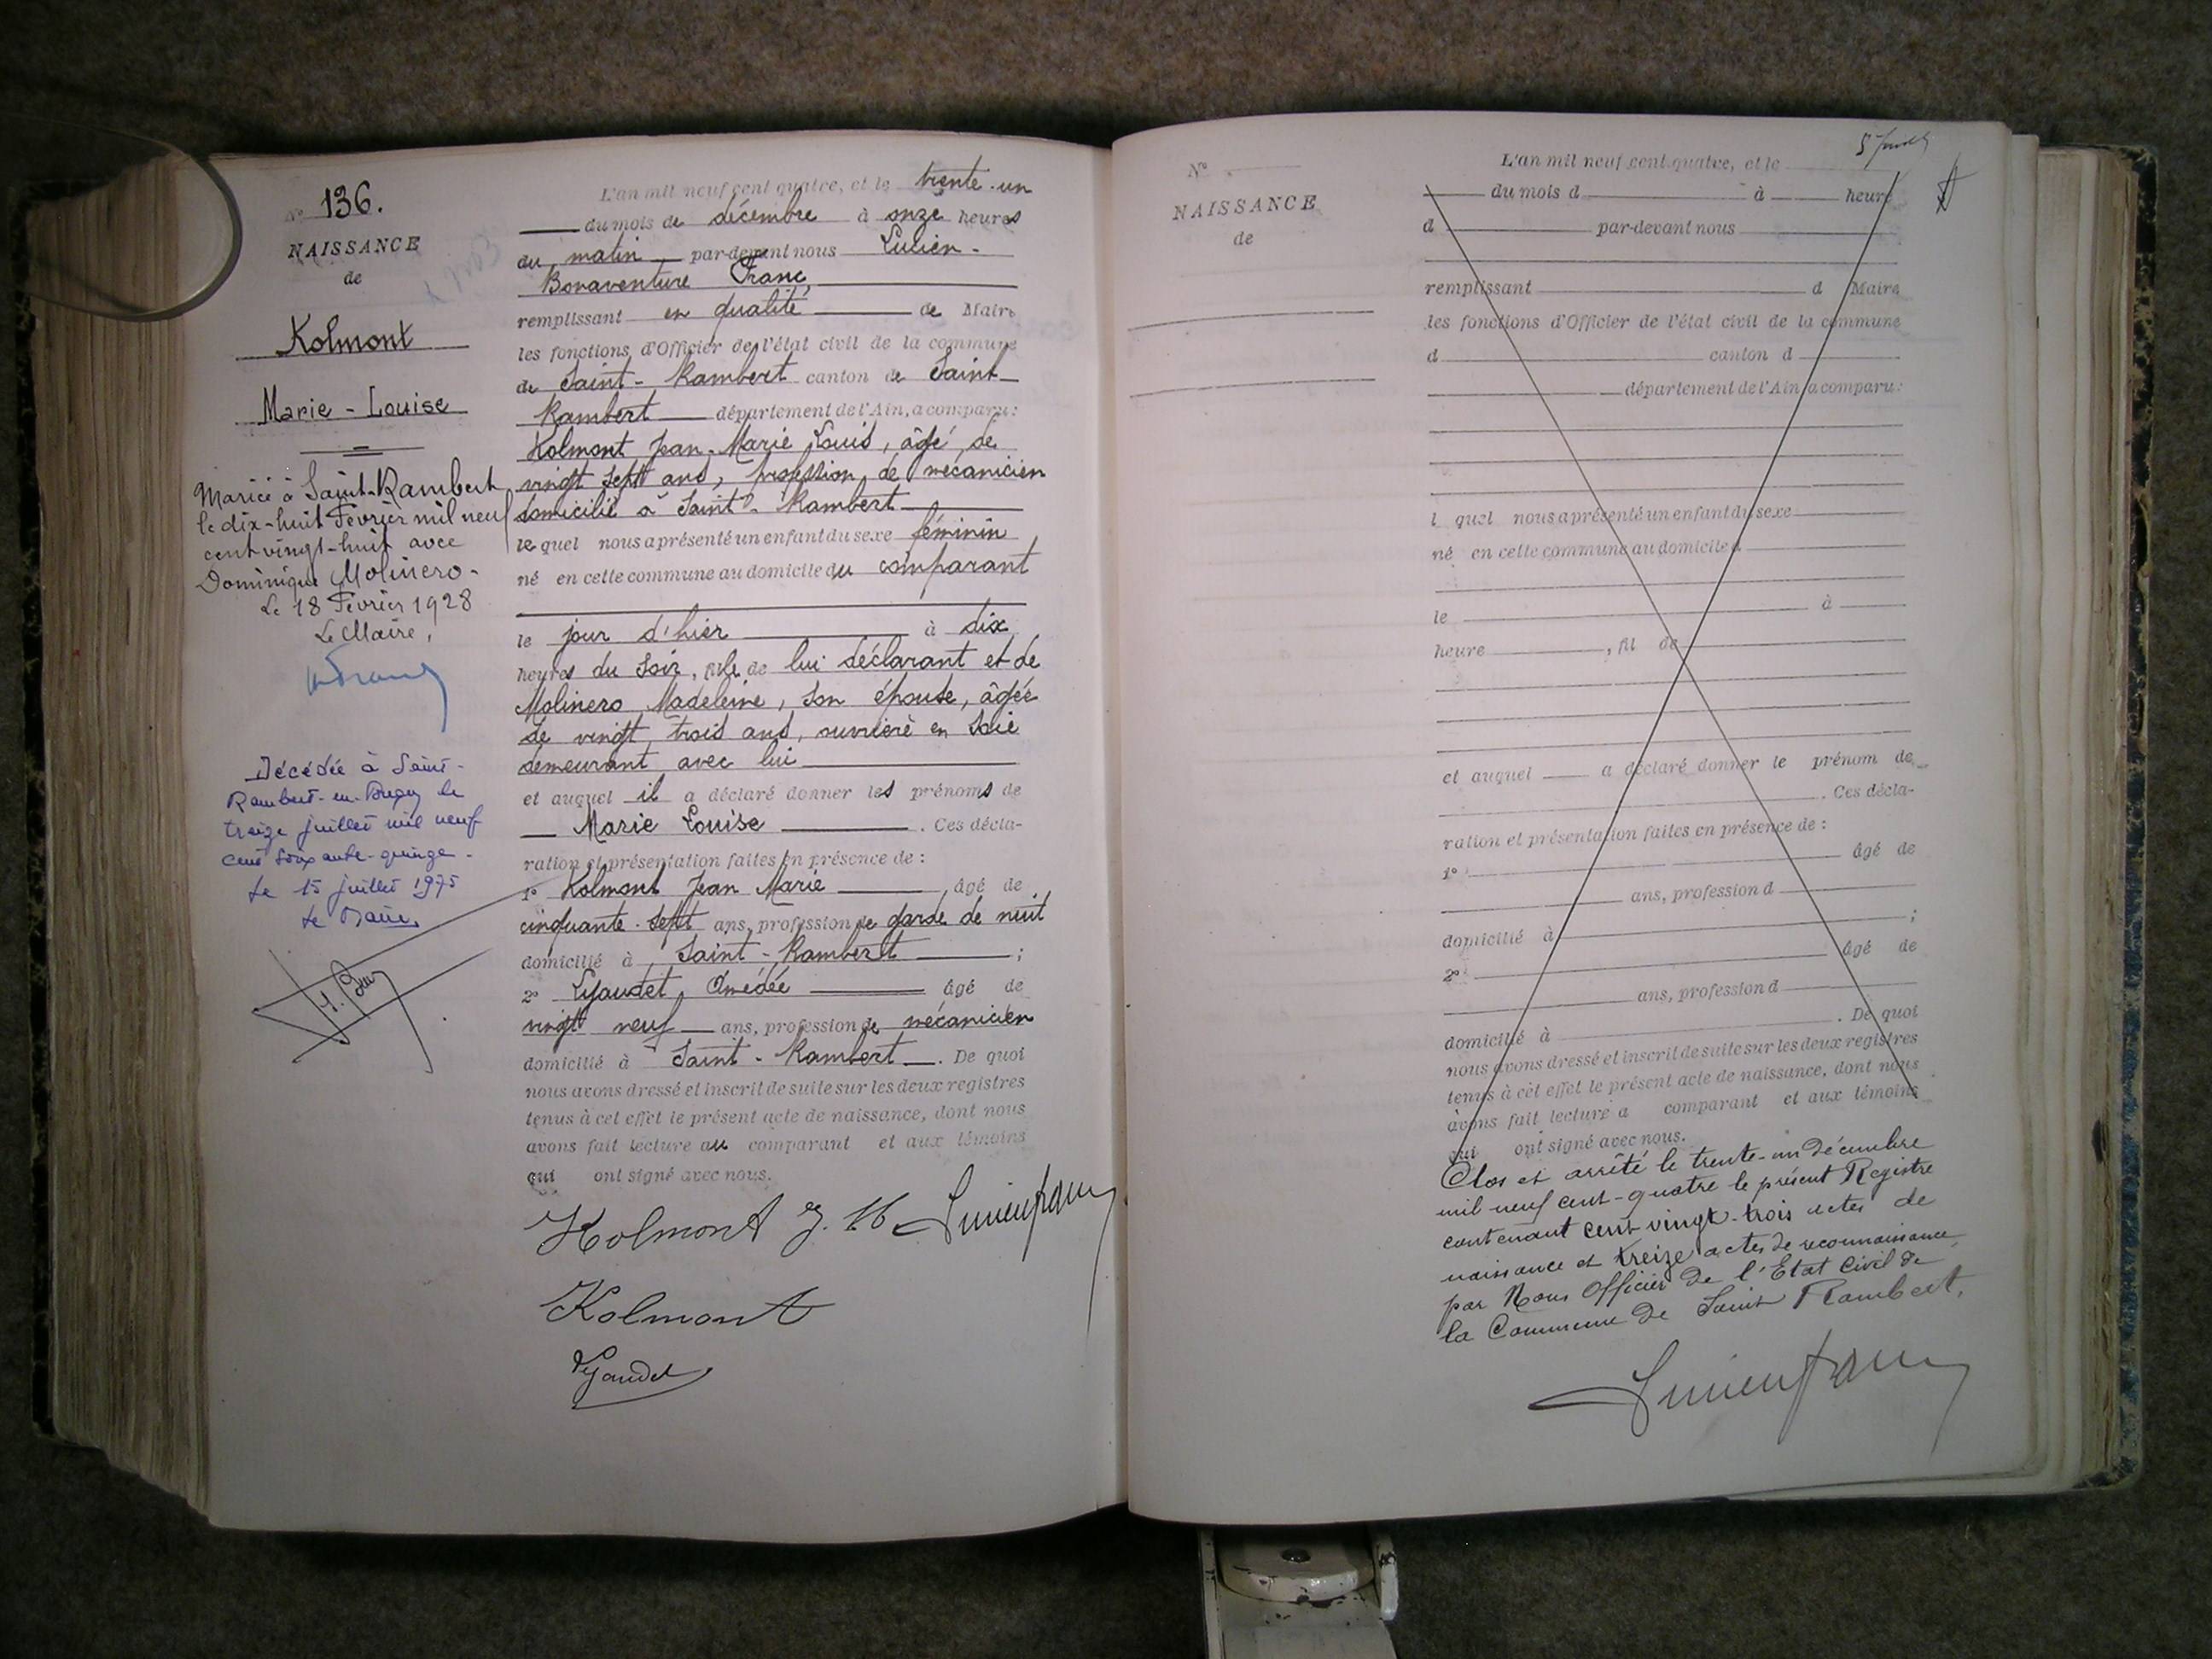 N° 136.
NAISSANCE
de
Kolmont
Marie - Louise
Mariée à Saint-Rambert
le dix-huit Février mil neuf
cent vingt-huit avec
Dominique Molinero -
Le 18 Février 1928
Le Maire,
Décédée à Saint-
Rambert-en-Bugey le
treize juillet mil neuf
cent soixante-quinze -
Le 15 juillet 1975
Le Maire,
L'an mil neuf cent quatre, et le trente-un
du mois de décembre à onze heures
du matin par-devant nous Lucien-
Bonaventure Franc,
remplissant en qualité de Maire
les fonctions d'Officier de l'état civil de la commune
de Saint-Rambert canton de Saint-
Rambert département de l'Ain, a comparu :
Kolmont Jean-Marie Louis, âgé de
vingt sept ans, profession de mécanicien
domicilié à Saint-Rambert
lequel nous a présenté un enfant du sexe féminin
né en cette commune au domicile du comparant
le jour d'hier à dix
heures du soir, fille de lui déclarant et de
Molinero Madeleine, son épouse, âgée
de vingt trois ans, ouvrière en soie
demeurant avec lui
et auquel il a déclaré donner les prénoms de
Marie Louise . Ces décla-
ration et présentation faites en présence de :
1° Kolmont Jean Marie , âgé de
cinquante-sept ans, profession de garde de nuit
domicilié à Saint-Rambert ;
2° Lyaudet Amédée âgé de
vingt neuf ans, profession de mécanicien
domicilié à Saint-Rambert . De quoi
nous avons dressé et inscrit de suite sur les deux registres
tenus à cet effet le présent acte de naissance, dont nous
avons fait lecture au comparant et aux témoins
qui ont signé avec nous.
Kolmont J. M Lucien franc
Kolmont
Lyaudet
N°
NAISSANCE
de
L'an mil neuf cent quatre, et le
du mois d à heure
d par-devant nous
remplissant d Maire
les fonctions d'Officier de l'état civil de la commune
d canton d
département de l'Ain, a comparu :
l quel nous a présenté un enfant du sexe
né en cette commune au domicile d
le à
heure , fil de
et auquel a déclaré donner le prénom de
. Ces décla-
ration et présentation faites en présence de :
1° âgé de
ans, profession d
domicilié à ;
2° âgé de
ans, profession d
domicilié à . De quoi
nous avons dressé et inscrit de suite sur les deux registres
tenus à cet effet le présent acte de naissance, dont nous
avons fait lecture a comparant et aux témoins
qui ont signé avec nous.
Clos et arrêté le trente-un décembre
mil neuf cent-quatre le présent Registre
contenant cent vingt-trois actes de
naissance et treize actes de reconnaissance,
par Nous Officier de l'Etat Civil de
la Commune de Saint Rambert.
Lucien franc